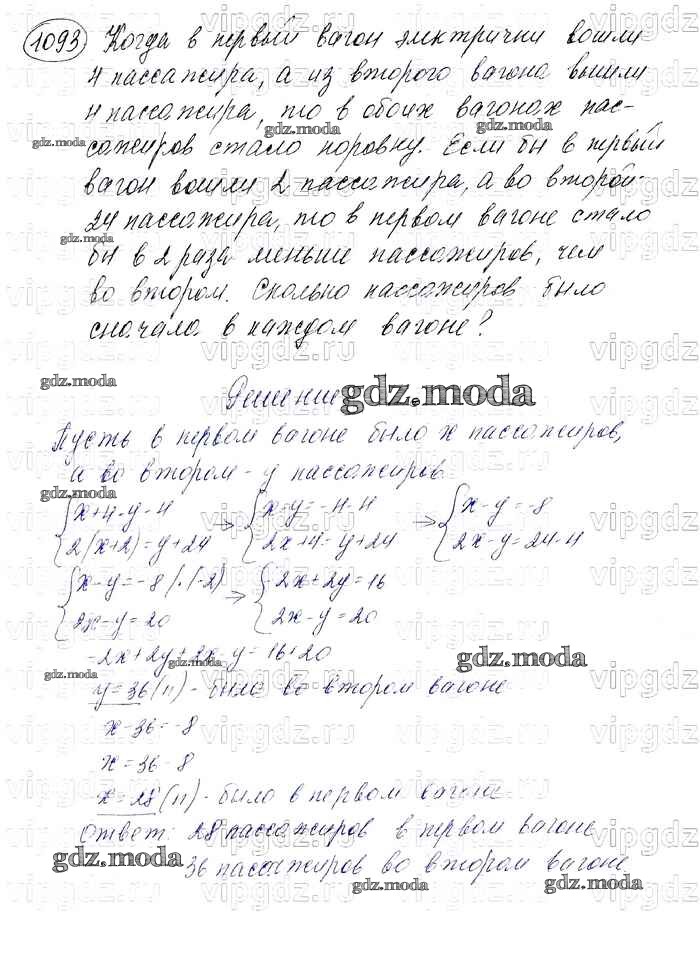 1093 Когда в первый вагон электрички вошли
4 пассажира, а из второго вагона вышли
4 пассажира, то в обоих вагонах пас-
сажиров стало поровну. Если бы в первый
вагон вошли 2 пассажира, а во второй-
24 пассажира, то в первом вагоне стало
бы в 2 раза меньше пассажиров, чем
во втором. Сколько пассажиров было
сначала в каждом вагоне?
Решение
Пусть в первом вагоне было x пассажиров,
а во втором - y пассажиров
{x+4=y-4 → {x-y=-4-4 → {x-y=-8
2(x+2)=y+24 2x+4=y+24 2x-y=24-4
{x-y=-8 /·(-2) → {-2x+2y=16
2x-y=20 2x-y=20
-2x+2y+2x-y=16+20
y=36(п) - было во втором вагоне
x-36=-8
x=36-8
x=28(п) - было в первом вагоне
Ответ: 28 пассажиров в первом вагоне
36 пассажиров во втором вагоне
gdz.moda
vipgdz.ru